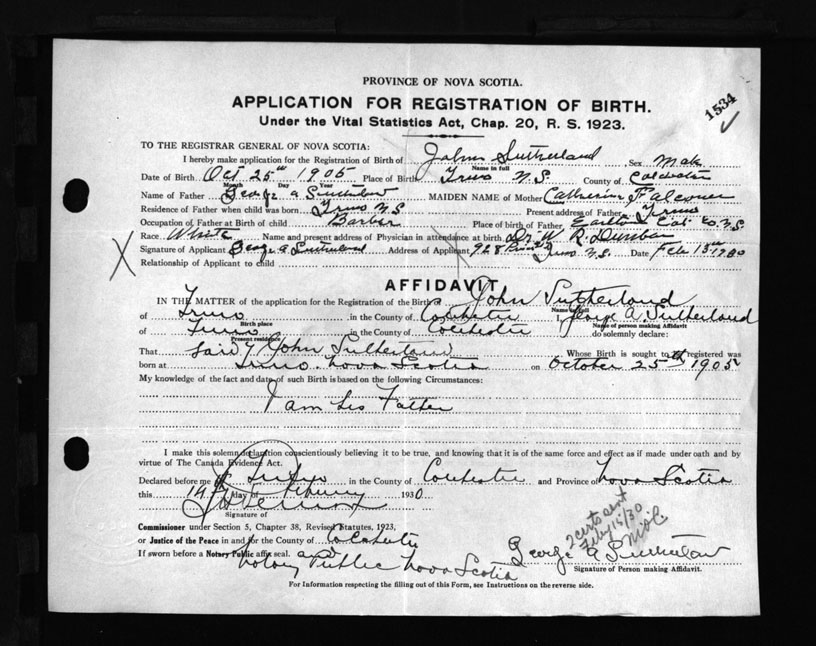 PROVINCE OF NOVA SCOTIA.
APPLICATION FOR REGISTRATION OF BIRTH.
1534
Under the Vital Statistics Act, Chap. 20, R. S. 1923.
TO THE REGISTRAR GENERAL OF NOVA SCOTIA:
I hereby make application for the Registration of Birth of John Sutherland Sex Male
Name in full
Date of Birth Oct 25th 1905 Place of Birth Truro N.S. County of Colchester
Month Day Year
Name of Father George A Sutherland MAIDEN NAME of Mother Catherine Falconer
Residence of Father when child was born Truro N.S Present address of Father Truro
Occupation of Father at Birth of child Barber Place of birth of Father Earltown Col. Co. N.S.
Race White Name and present address of Physician in attendance at birth Dr. W. R. Dunbar
Signature of Applicant George A. Sutherland Address of Applicant 728 Truro N.S. Date Feb 15th 1930
Relationship of Applicant to child
AFFIDAVIT
IN THE MATTER of the application for the Registration of the Birth of John Sutherland
Name in full
of Truro in the County of Colchester I George A. Sutherland
Birth place Name of person making Affidavit
of Truro in the County of Colchester do solemnly declare:
Present residence
That said John Sutherland Whose Birth is sought to be registered was
born at Truro. Nova Scotia on October 25th 1905
My knowledge of the fact and date of such Birth is based on the following Circumstances:
I am his Father
I make this solemn declaration conscientiously believing it to be true, and knowing that it is of the same force and effect as if made under oath and by
virtue of The Canada Evidence Act.
Declared before me at Truro in the County of Colchester and Province of Nova Scotia
this 14th day of February 1930
Signature of
Commissioner under Section 5, Chapter 38, Revised Statutes, 1923,
or Justice of the Peace in and for the County of Colchester
2 certs sent
Feby 15/30
If sworn before a Notary Public affix seal. and
George A Sutherland
Notary Public Nova Scotia
Signature of Person making Affidavit.
For Information respecting the filling out of this Form, see Instructions on the reverse side.